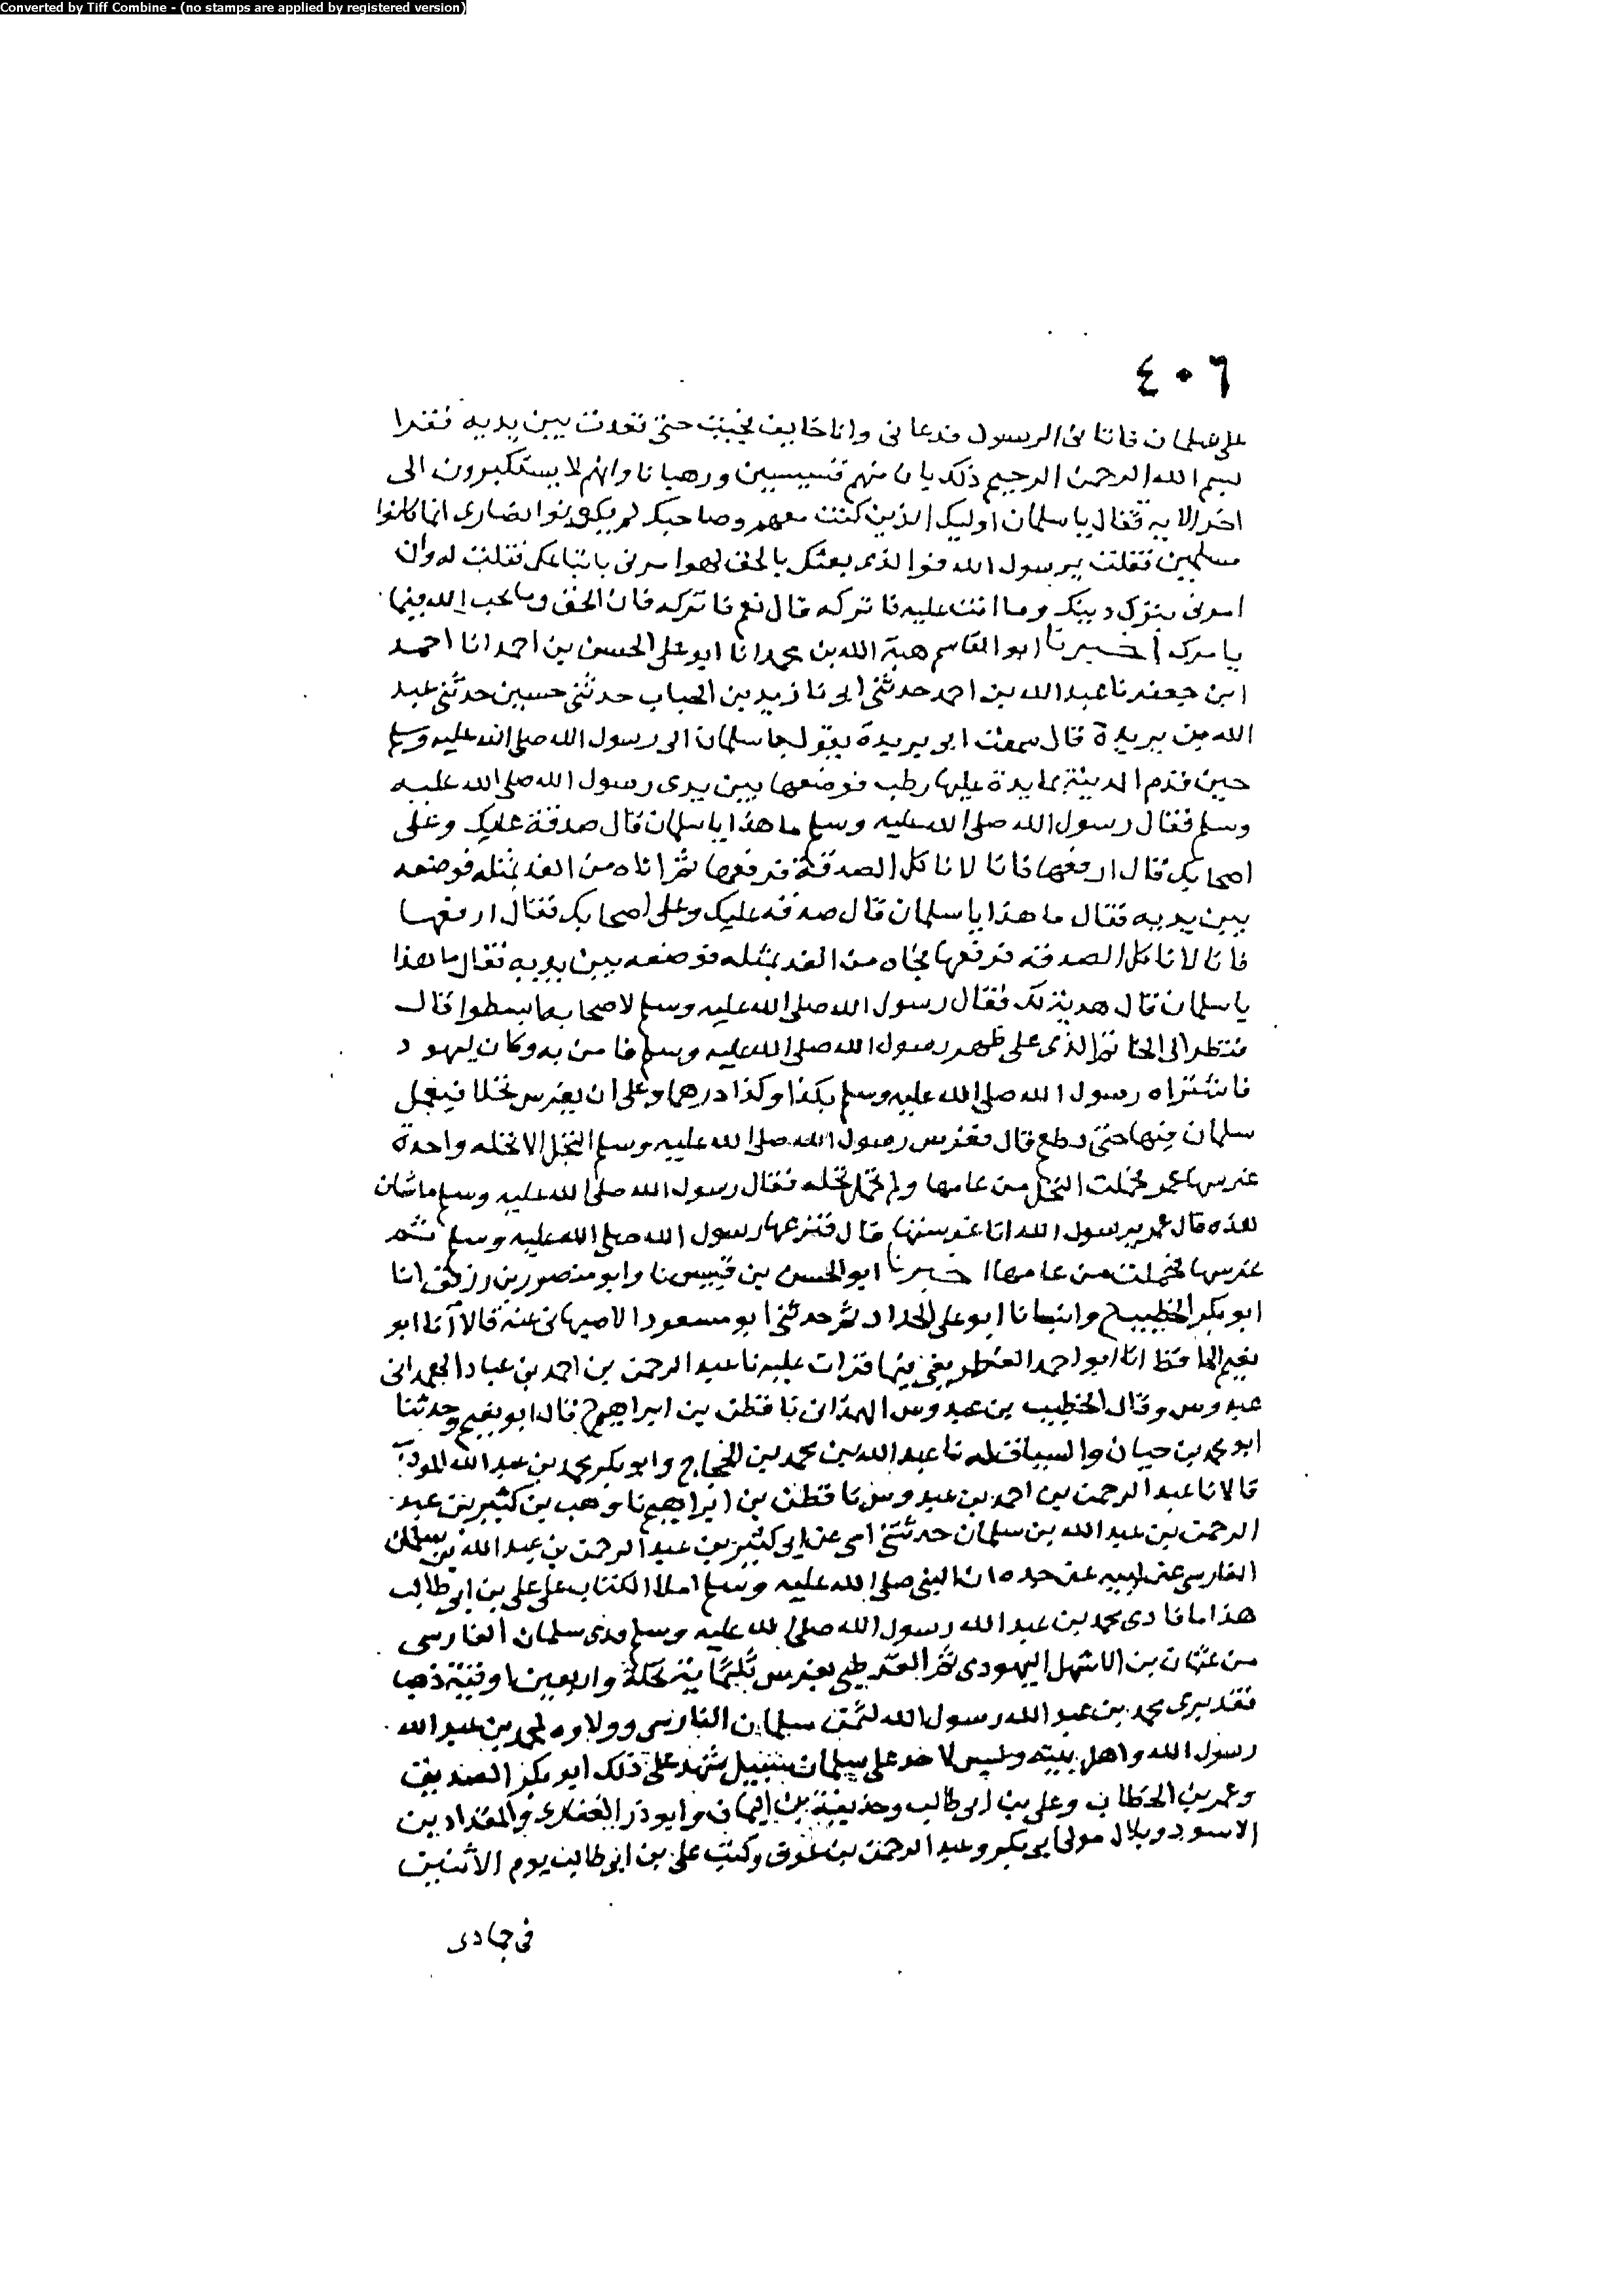 Converted by Tiff Combine - (no stamps are applied by registered version)
٤٠٦
على سلمان فاتانى الرسول فدعانى وانا خايف فجيت حتى قعدت بين يديه فقرا
بسم الله الرحمن الرحيم ذلك بان منهم قسيسين ورهبانا وانهم لا يستكبرون الى
اخر الايه فقال يا سلمان اوليك الذين كنت معهم وصاحبك لم يكونوا نصارى انما كانوا
مسلمين فقلت يرسول الله فوالذى بعثك بالحق لهو امرنى باتباعك فقلت له وان
امرنى بترك دينك وما انت عليه فاتركه قال نعم فاتركه فان الحق وما يحب الله فيما
يامرك اخبرنا ابو القاسم هبة الله بن محمد انا ابو على الحسن بن احمد انا احمد
ابن جعفر نا عبد الله بن احمد حدثنى ابى نا زيد بن الحباب حدثنى حسين حدثنى عبد
الله بن بريدة قال سمعت ابى بريدة يقول جا سلمان الى رسول الله صلى الله عليه وسلم
حين قدم المدينة بمايدة عليها رطب فوضعها بين يدى رسول الله صلى الله عليه
وسلم فقال رسول الله صلى الله عليه وسلم ما هذا يا سلمان قال صدقة عليك وعلى
اصحابك قال ارفعها فانا لا ناكل الصدقة فرفعها ثم اتاه من الغد بمثله فوضعه
بين يديه فقال ما هذا يا سلمان قال صدقه عليك وعلى اصحابك فقال ارفعها
فانا لا ناكل الصدقه فرفعها فجاه من الغد بمثله فوضعه بين يديه فقال ما هذا
يا سلمان قال هدية لك فقال رسول الله صلى الله عليه وسلم لاصحابه ابسطوا قال
فنظر الى الخاتم الذى على ظهر رسول الله صلى الله عليه وسلم فامن به وكان ليهود
فاشتراه رسول الله صلى الله عليه وسلم بكذا وكذا درهما وعلى ان يغرس نخلا فيعمل
سلمان فيها حتى يطعم قال فغرس رسول الله صلى الله عليه وسلم النخل الا نخله واحدة
غرسها عمر فحملت النخل من عامها ولم تحمل نخله فقال رسول الله صلى الله عليه وسلم ما شان
هذه قال عمر يرسول الله انا غرستها قال فنزعها رسول الله صلى الله عليه وسلم ثم
غرسها فحملت من عامها اخبرنا ابو الحسن بن قبيس نا وابو منصور بن زريق انا
ابو بكر الخطيب ح وانبانا ابو على الحداد ثم حدثنى ابو مسعود الاصبهانى عنه قالا انا ابو
نعيم الحافظ انا ابو احمد الغطريفى فيما قرات عليه نا عبد الرحمن بن احمد بن عباد الهمدانى
عبدوس وقال الخطيب بن عبدوس الهمذانى نا قطن بن ابراهيم ح قال ابو نعيم وحدثنا
ابو محمد بن حيان والسياق له نا عبد الله بن محمد بن الحجاج وابو بكر محمد بن عبد الله المودب
قالا نا عبد الرحمن بن احمد بن عبدوس نا قطن بن ابراهيم نا وهب بن كثير بن عبد
الرحمن بن عبد الله بن سلمان حدثتنى امى عن ابى كثير بن عبد الرحمن بن عبد الله بن سلمان
الفارسى عن ابيه عن جده ان النبى صلى الله عليه وسلم املا الكتاب على على بن ابى طالب
هذا ما فادى محمد بن عبد الله رسول الله صلى الله عليه وسلم فدى سلمان الفارسى
من عثمان بن الاشهل اليهودى ثم القرظى بغرس ثلثماية نخلة واربعين اوقية ذهبا
فقد برى محمد بن عبد الله رسول الله لثمن سلمان الفارسى وولاوه لمحمد بن عبد الله
رسول الله واهل بيته وليس لاحد على سلمان سبيل شهد على ذلك ابو بكر الصديق
وعمر بن الخطاب وعلى بن ابى طالب وحذيفة بن اليمان وابو ذر الغفارى والمقداد بن
الاسود وبلال مولى ابى بكر وعبد الرحمن بن عوف وكتب على بن ابى طالب يوم الاثنين
فى جمادى